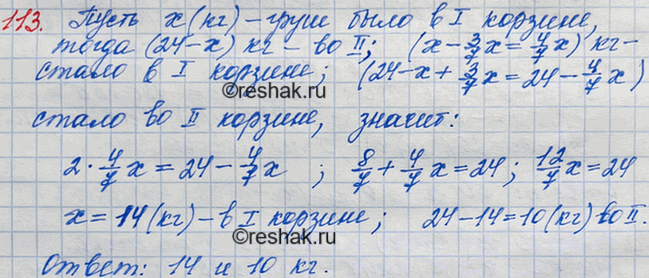 113. Пусть x (кг) - груш было в I корзине,
тогда (24-x) кг - во II; (x - 3/7x = 4/7x) кг -
стало в I корзине; (24-x + 3/7x = 24 - 4/7x)
©reshak.ru
стало во II корзине, значит:
2 · 4/7x = 24 - 4/7x ; 8/7 + 4/7x = 24; 12/7x = 24
x = 14 (кг) - в I корзине; 24-14=10 (кг) во II.
©reshak.ru
Ответ: 14 и 10 кг.